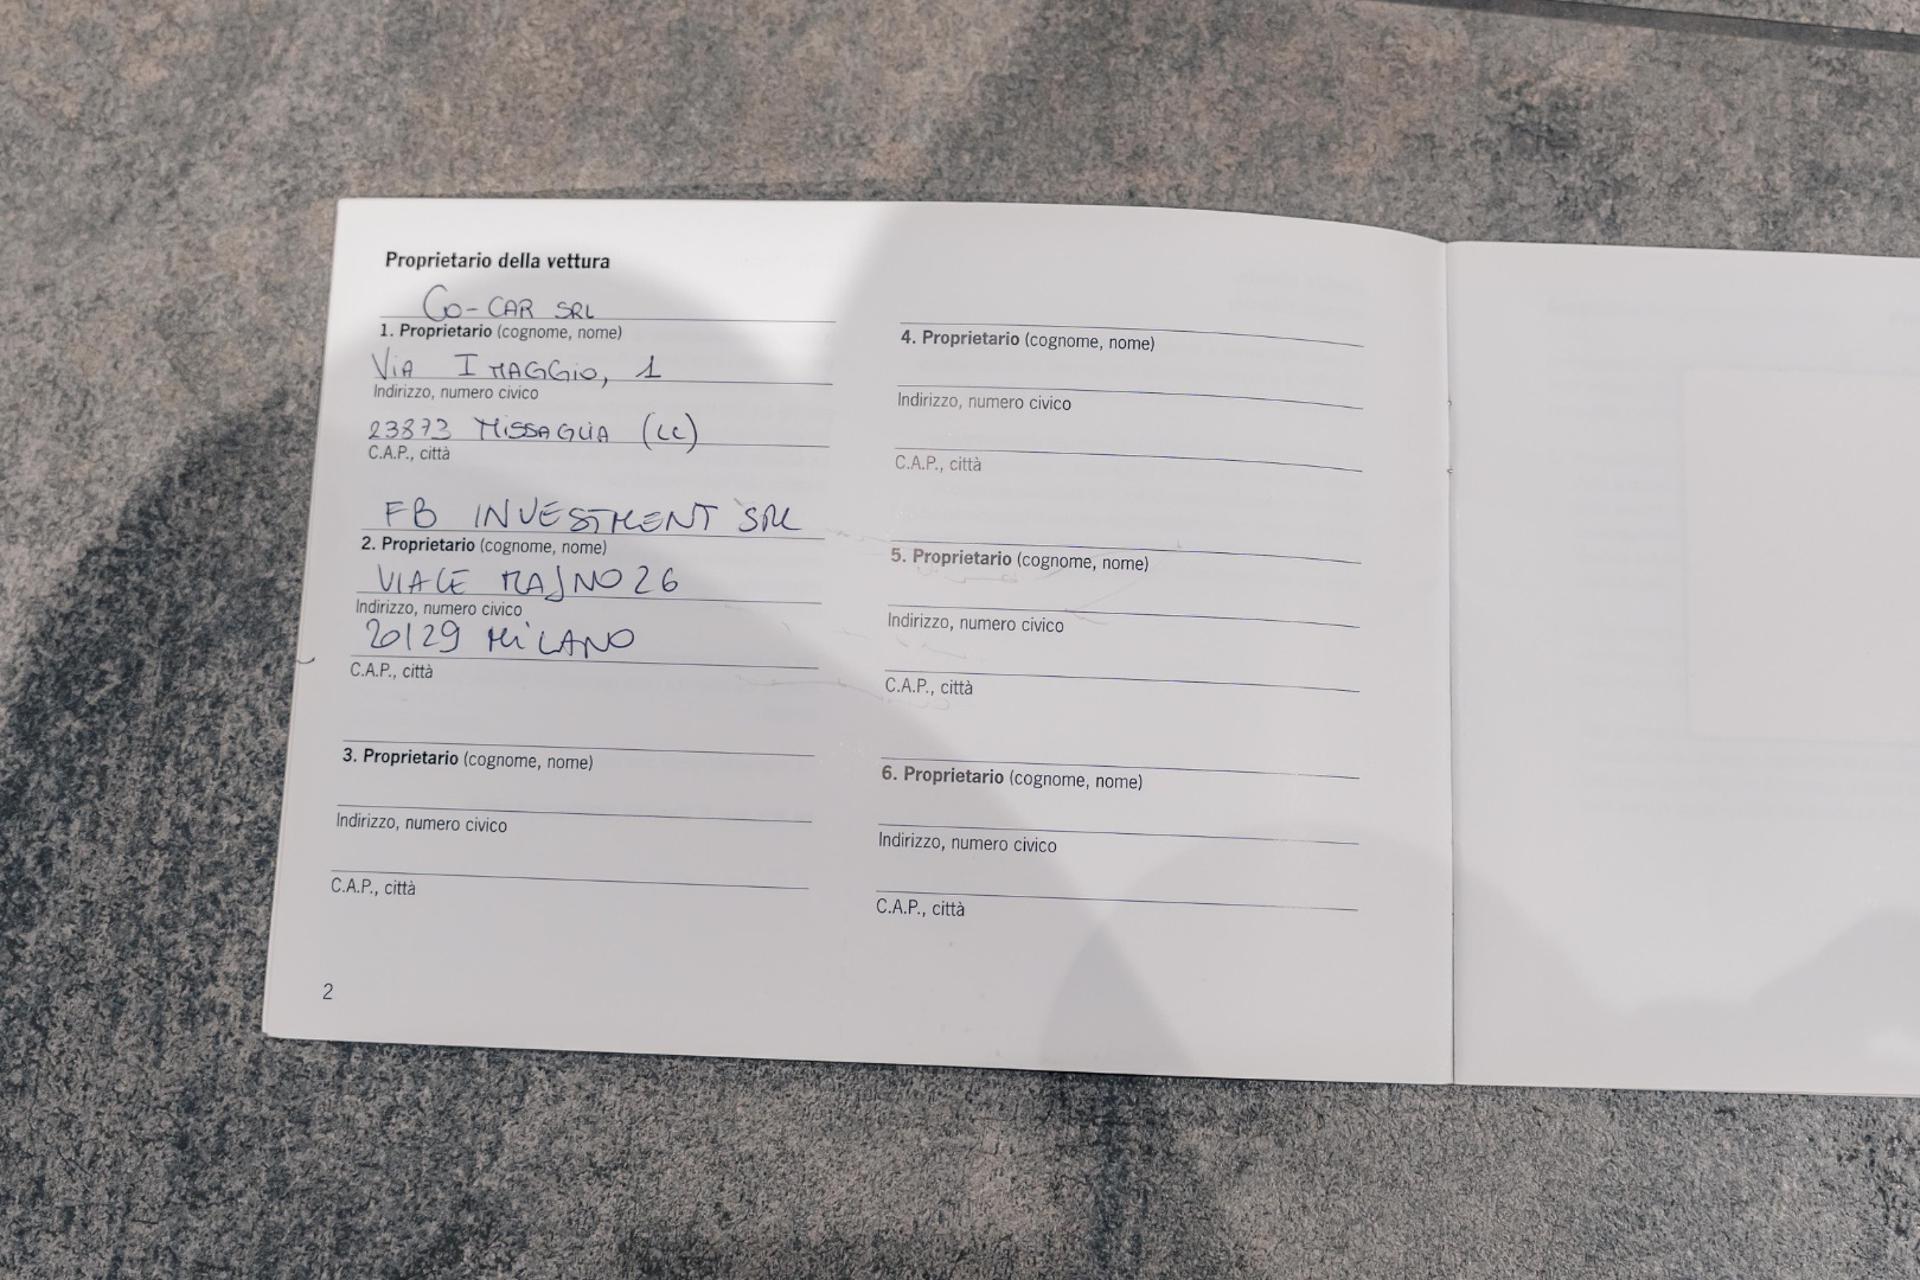 Proprietario della vettura
CO-CAR SRL
1. Proprietario (cognome, nome)
VIA I MAGGIO, 1
Indirizzo, numero civico
23873 MISSAGLIA (LC)
C.A.P., città
FB INVESTMENT SRL
2. Proprietario (cognome, nome)
VIALE MAJNO 26
Indirizzo, numero civico
20129 MILANO
C.A.P., città
3. Proprietario (cognome, nome)
Indirizzo, numero civico
C.A.P., città
4. Proprietario (cognome, nome)
Indirizzo, numero civico
C.A.P., città
5. Proprietario (cognome, nome)
Indirizzo, numero civico
C.A.P., città
6. Proprietario (cognome, nome)
Indirizzo, numero civico
C.A.P., città
2